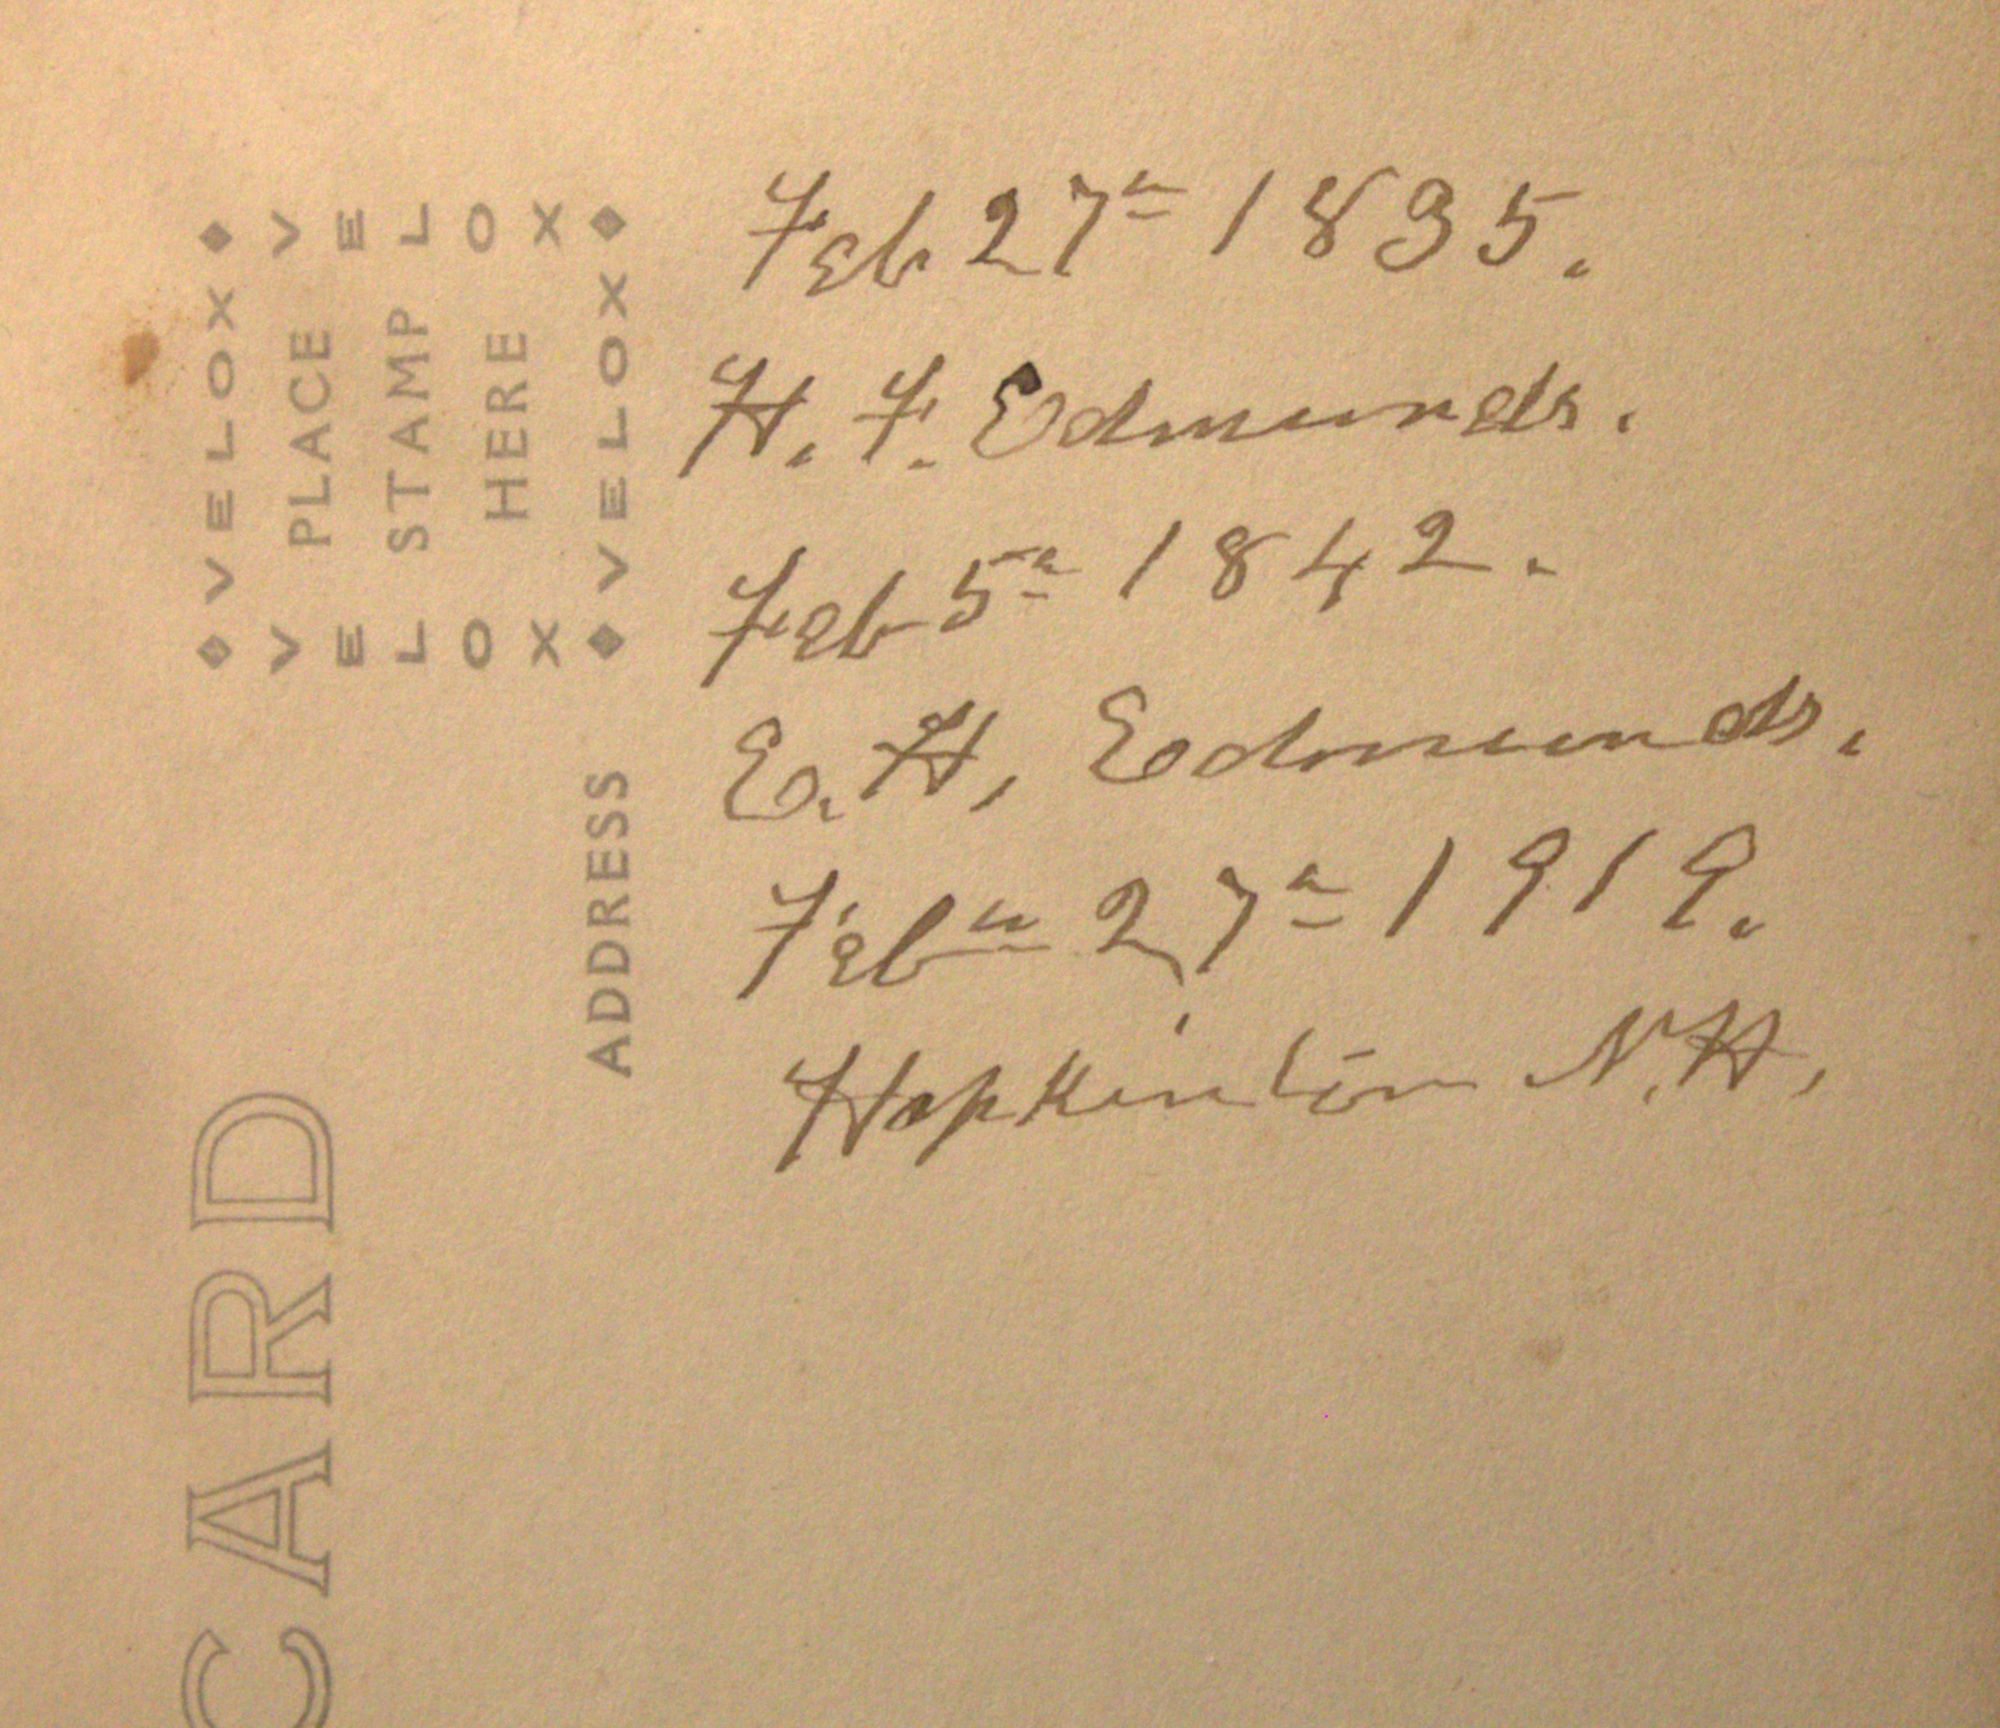 Feb 27th 1835.
H. F. Edmunds.
Feb 5th 1842.
E. H, Edmunds.
Feb 27th 1919.
Hopkinton N.H,
VELOX
VELOX
PLACE
STAMP
HERE
VELOX
VELOX
ADDRESS
CARD